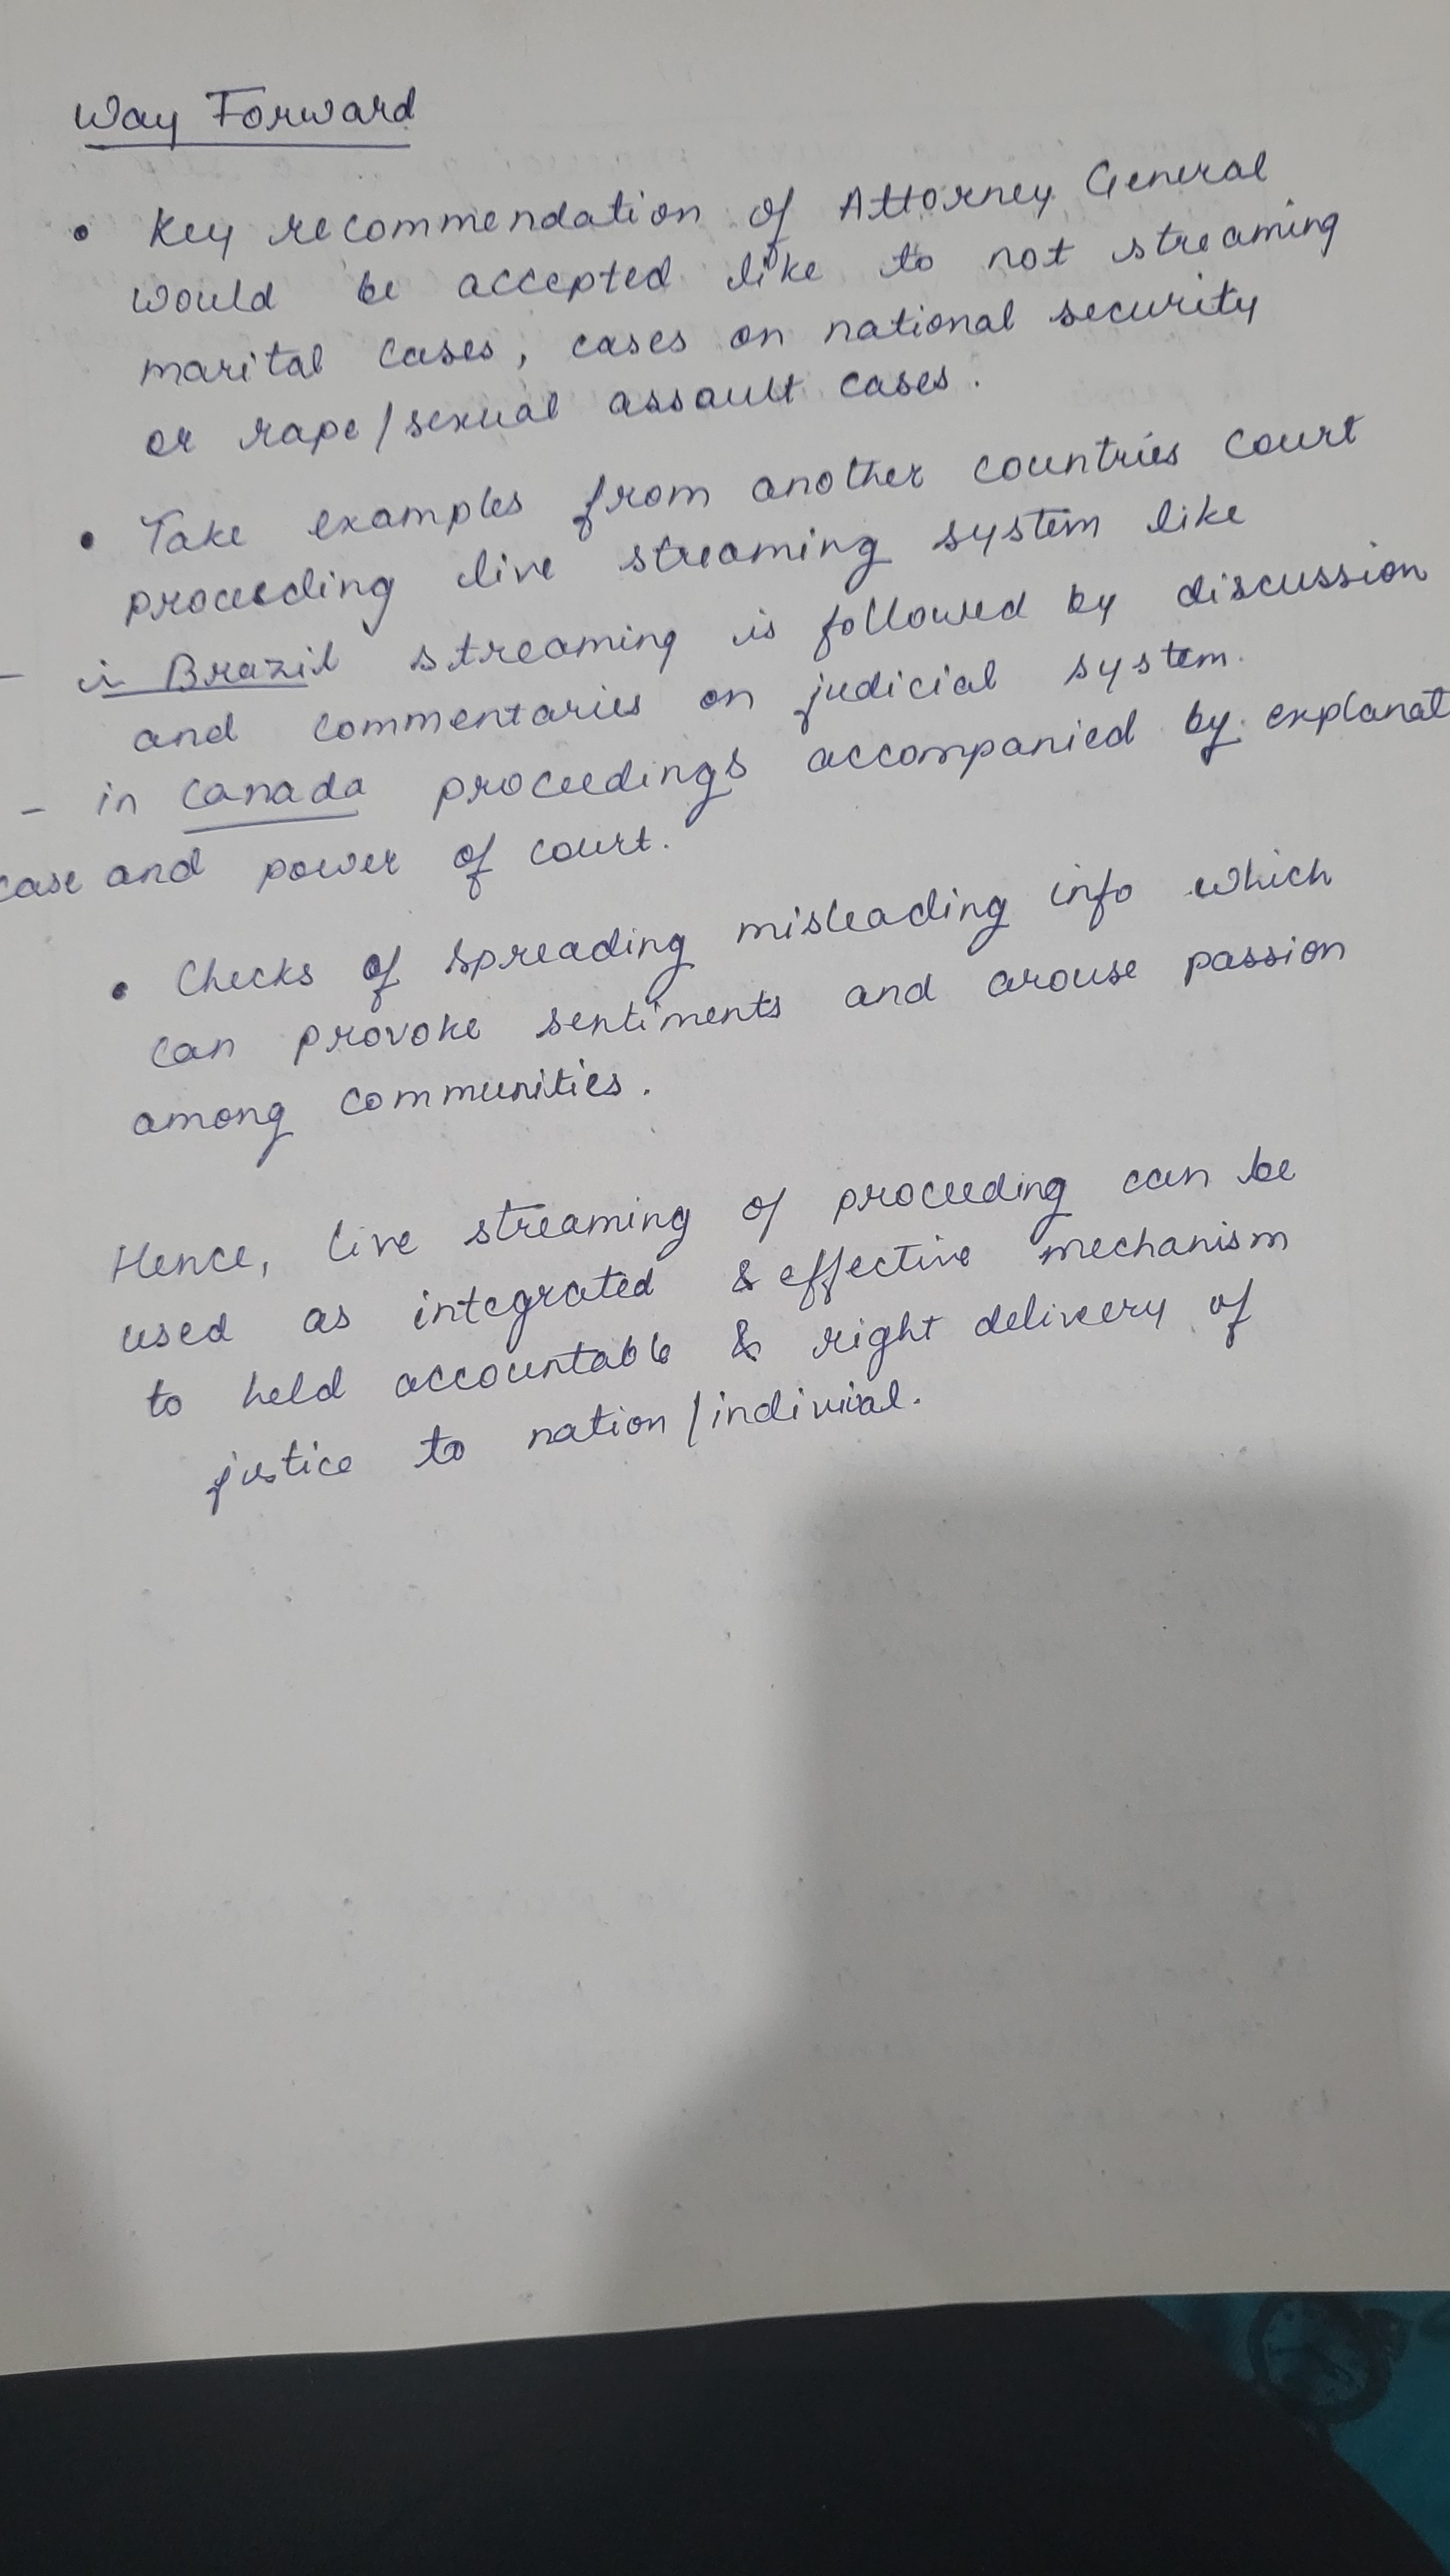 Way Forward
• Key recommendation of Attorney General
would be accepted like to not streaming
marital cases, cases on national security
or rape/sexual assault cases.
• Take examples from another countries court
proceeding live streaming system like
- in Brazil streaming is followed by discussion
and commentaries on judicial system.
- in Canada proceedings accompanied by explanat
case and power of court.
• Checks of spreading misleading info which
can provoke sentiments and arouse passion
among communities.
Hence, live streaming of proceeding can be
used as integrated & effective mechanism
to held accountable & right delivery of
justice to nation/indivival.